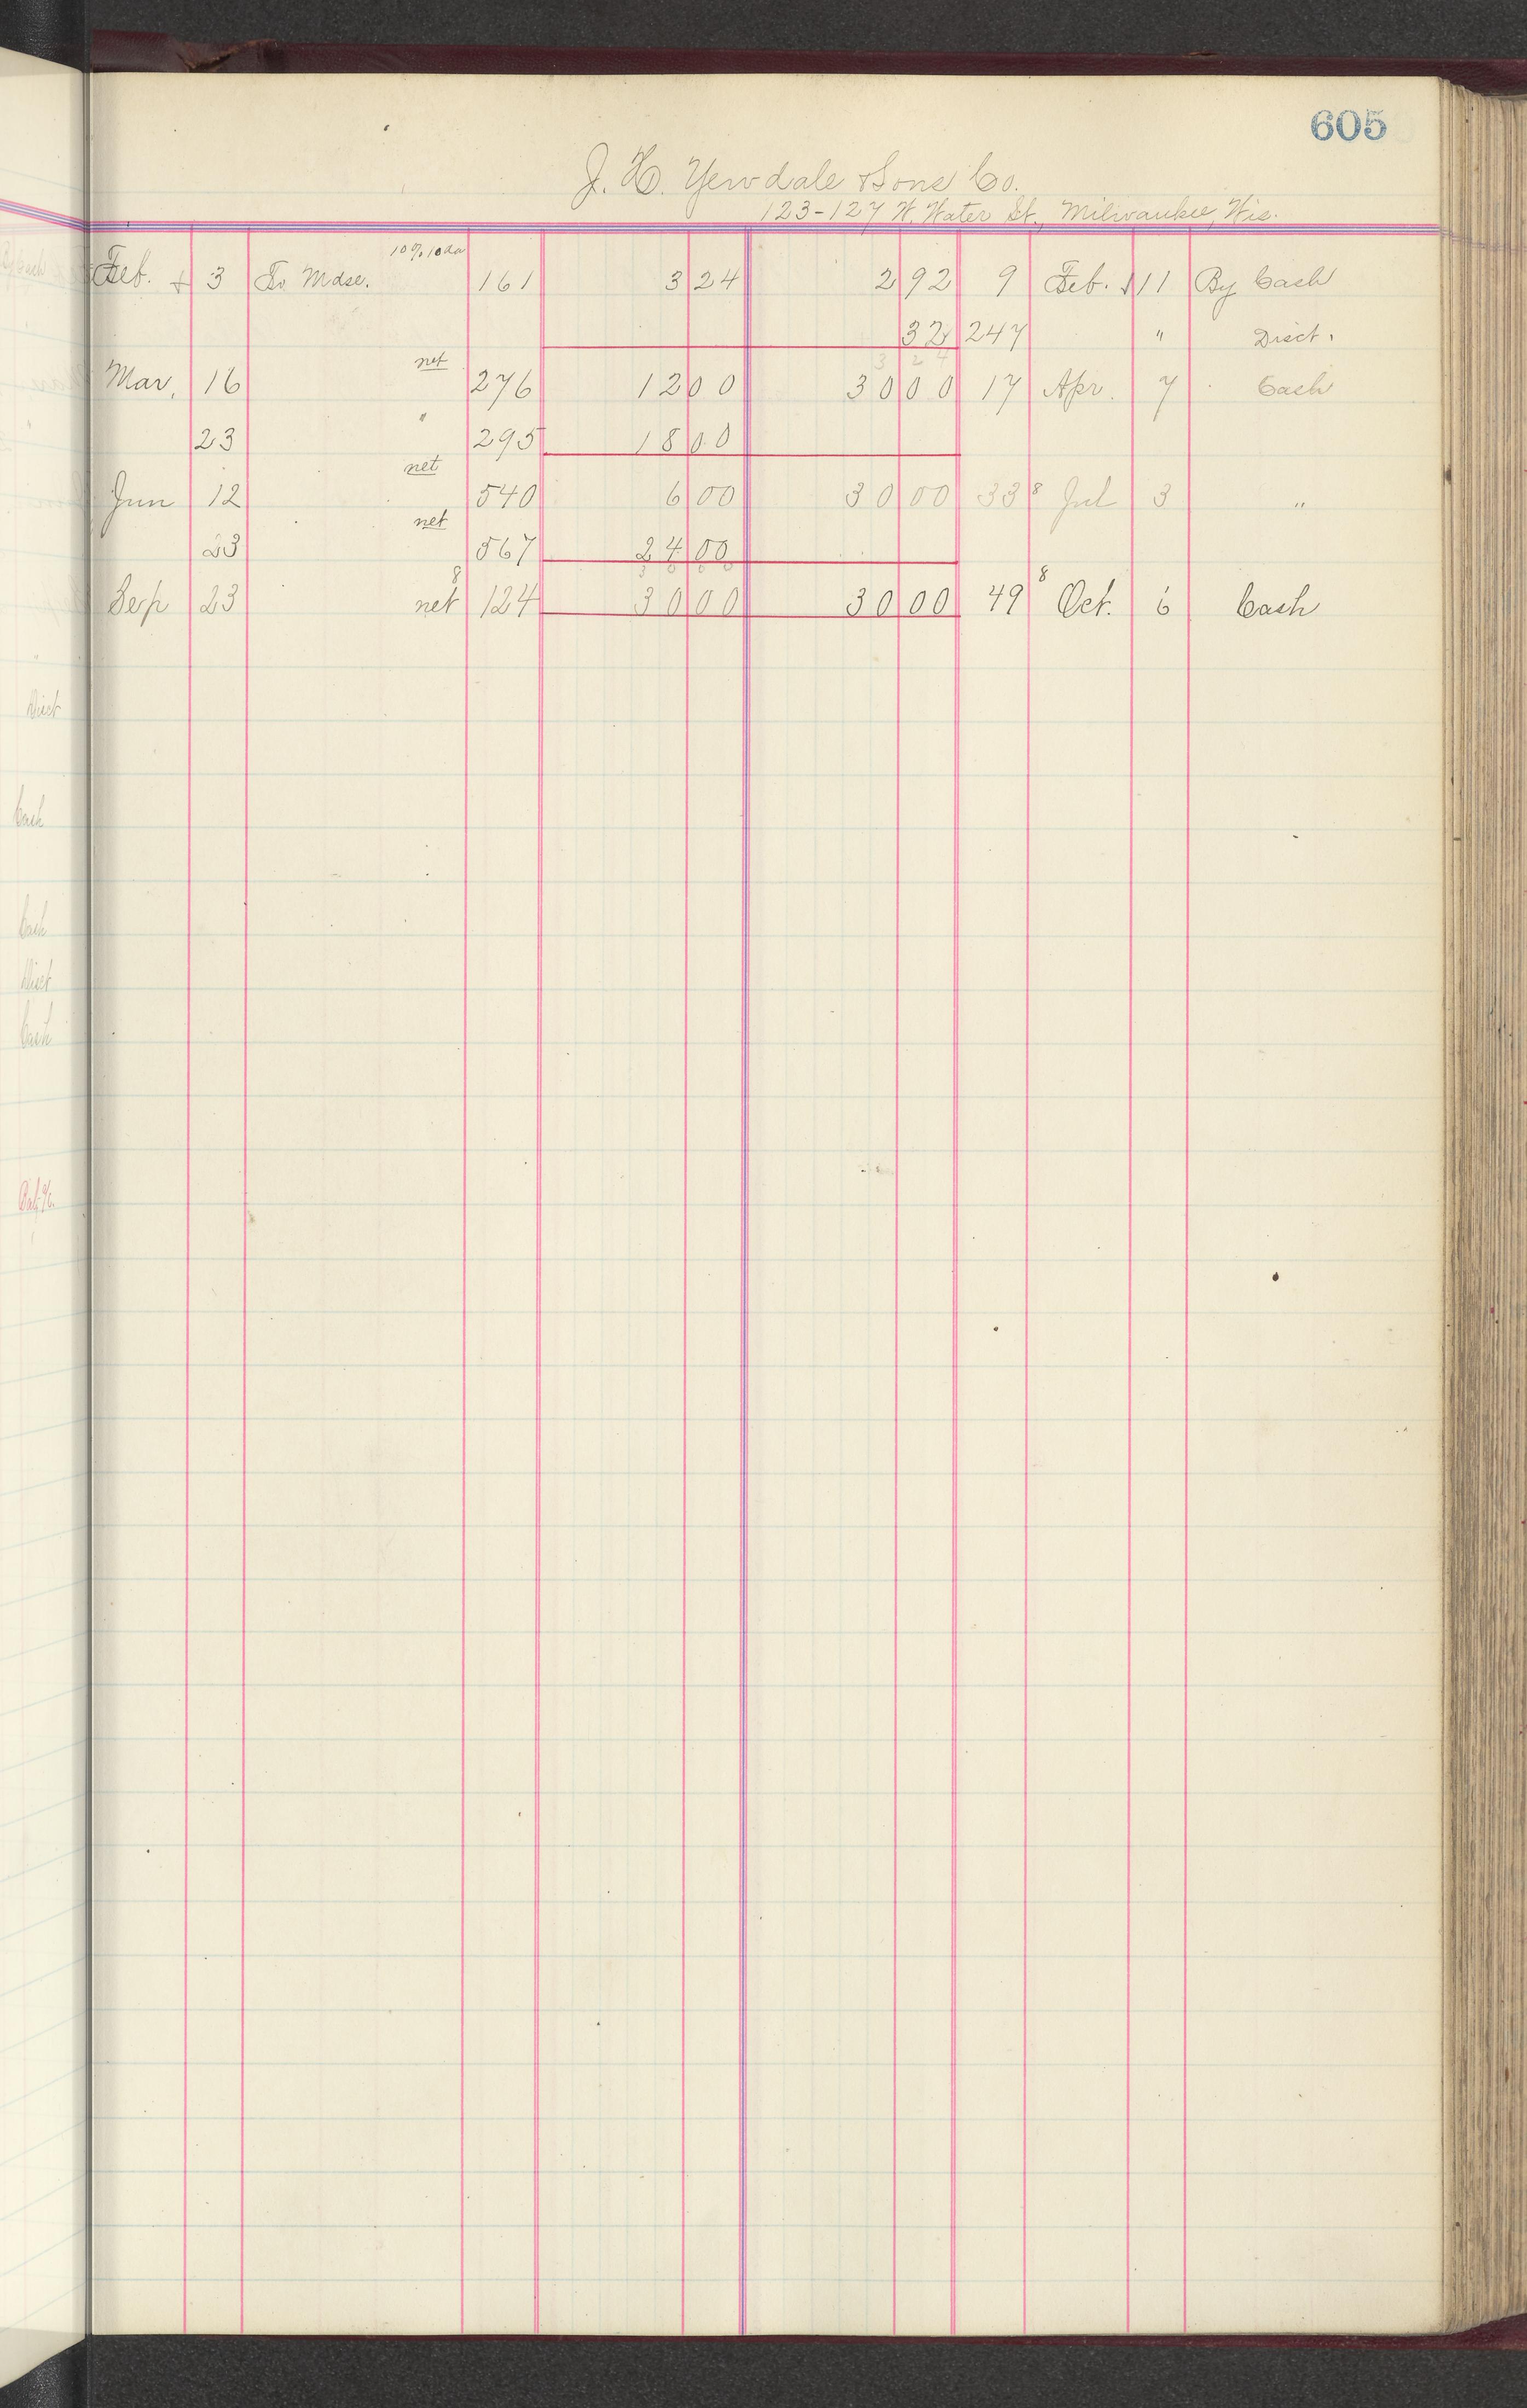 605
J. H. Yewdale & Sons Co.
123-127 W. Water St., Milwaukee, Wis.
Feb. 3 To Mdse. 10% 10 da 161 3 24 2 92 9 Feb. 11 By Cash
32 247 " Disct.
3 24
Mar. 16 net 276 12 00 30 00 17 Apr. 7 Cash
23 " 295 18 00
Jun 12 net 540 6 00 30 00 33 8 Jul 3 "
23 net 567 24 00
30 00
Sep 23 net 8 124 30 00 30 00 49 8 Oct. 6 Cash
Disct
Cash
Cash
Disct
Cash